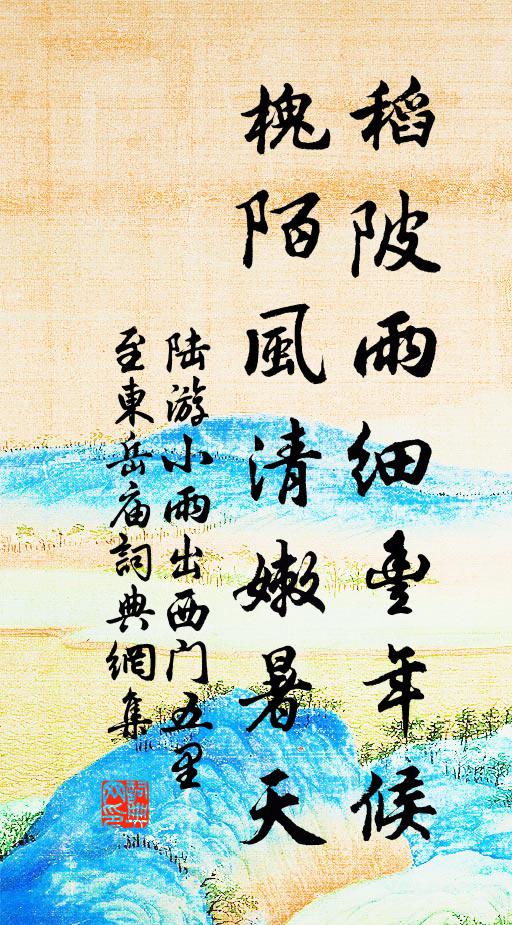 稻陂雨細豊年候
槐陌風清嫩暑天
陆游小雨出西门五里
至東岳庙詞典網集